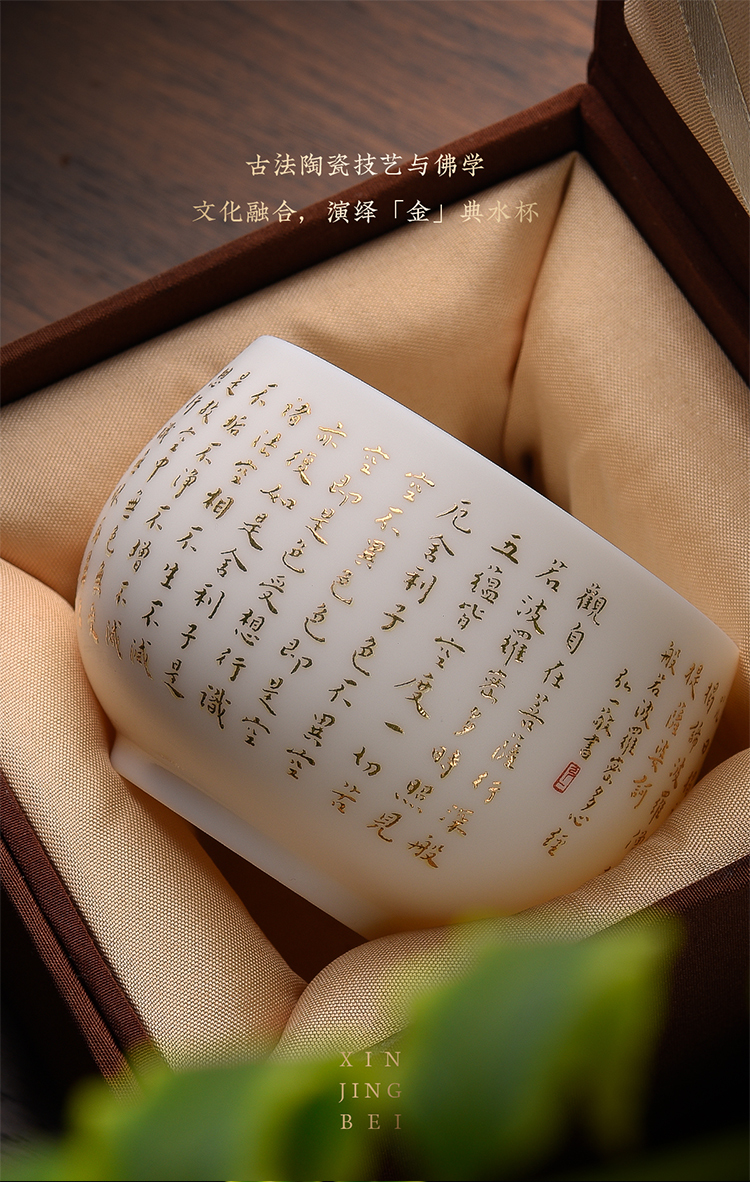 古法陶瓷技艺与佛学
文化融合，演绎「金」典水杯
觀自在菩薩行深般
若波羅密多時照見
五蘊皆空度一切苦
厄舍利子色不異空
空不異色色即是空
空即是色受想行識
亦復如是舍利子是
諸法空相不生不滅
不垢不淨不增不減
是故空中
般若波羅密多心經
弘一敬書
XIN
JING
BEI